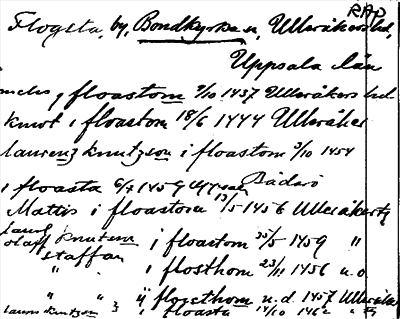 RAP
Flogsta, by, Bondkyrka sn, Ulleråkers hd,
Uppsala län
i floastom 9/10 1437 Ulleråkers hd
knut i floastom 18/6 1444 Ulleråker
laurenz knutzson i floastom 3/10 1454
i floasta 6/7 1459
Mattis i floastom 13/5 1456 Ulleråker
olaff knutson i floastom 1459 "
staffan
" " i flosthom 23/11 1456 u.o.
" " } ij floesthom u.d. 1457 Ulleråker
laurens knutzson i floasta 14/10